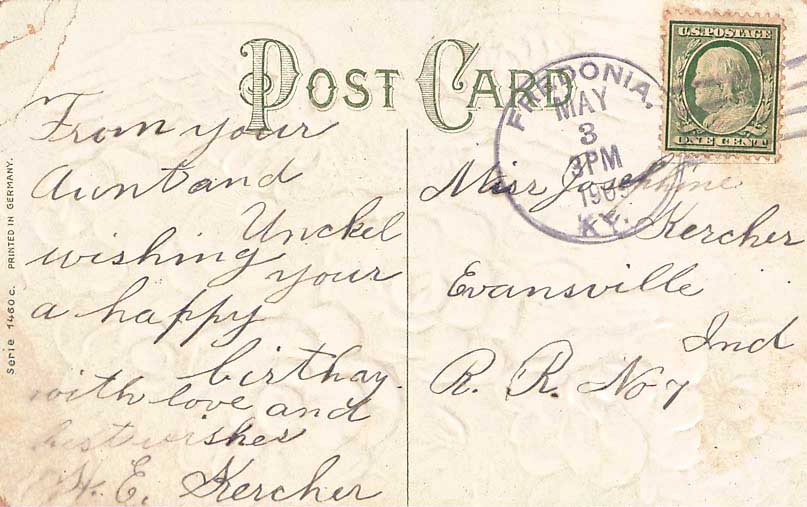 POST CARD
U.S. POSTAGE
ONE CENT
FREDONIA,
MAY
3
3PM
KY.
From your
Aunt and
Unckel
wishing
your
a happy
birthay.
with love and
best wishes
H. E. Kercher
Miss Josephine
Kercher
Evansville
Ind
R. R. No 7
Serie 1460 c. PRINTED IN GERMANY.